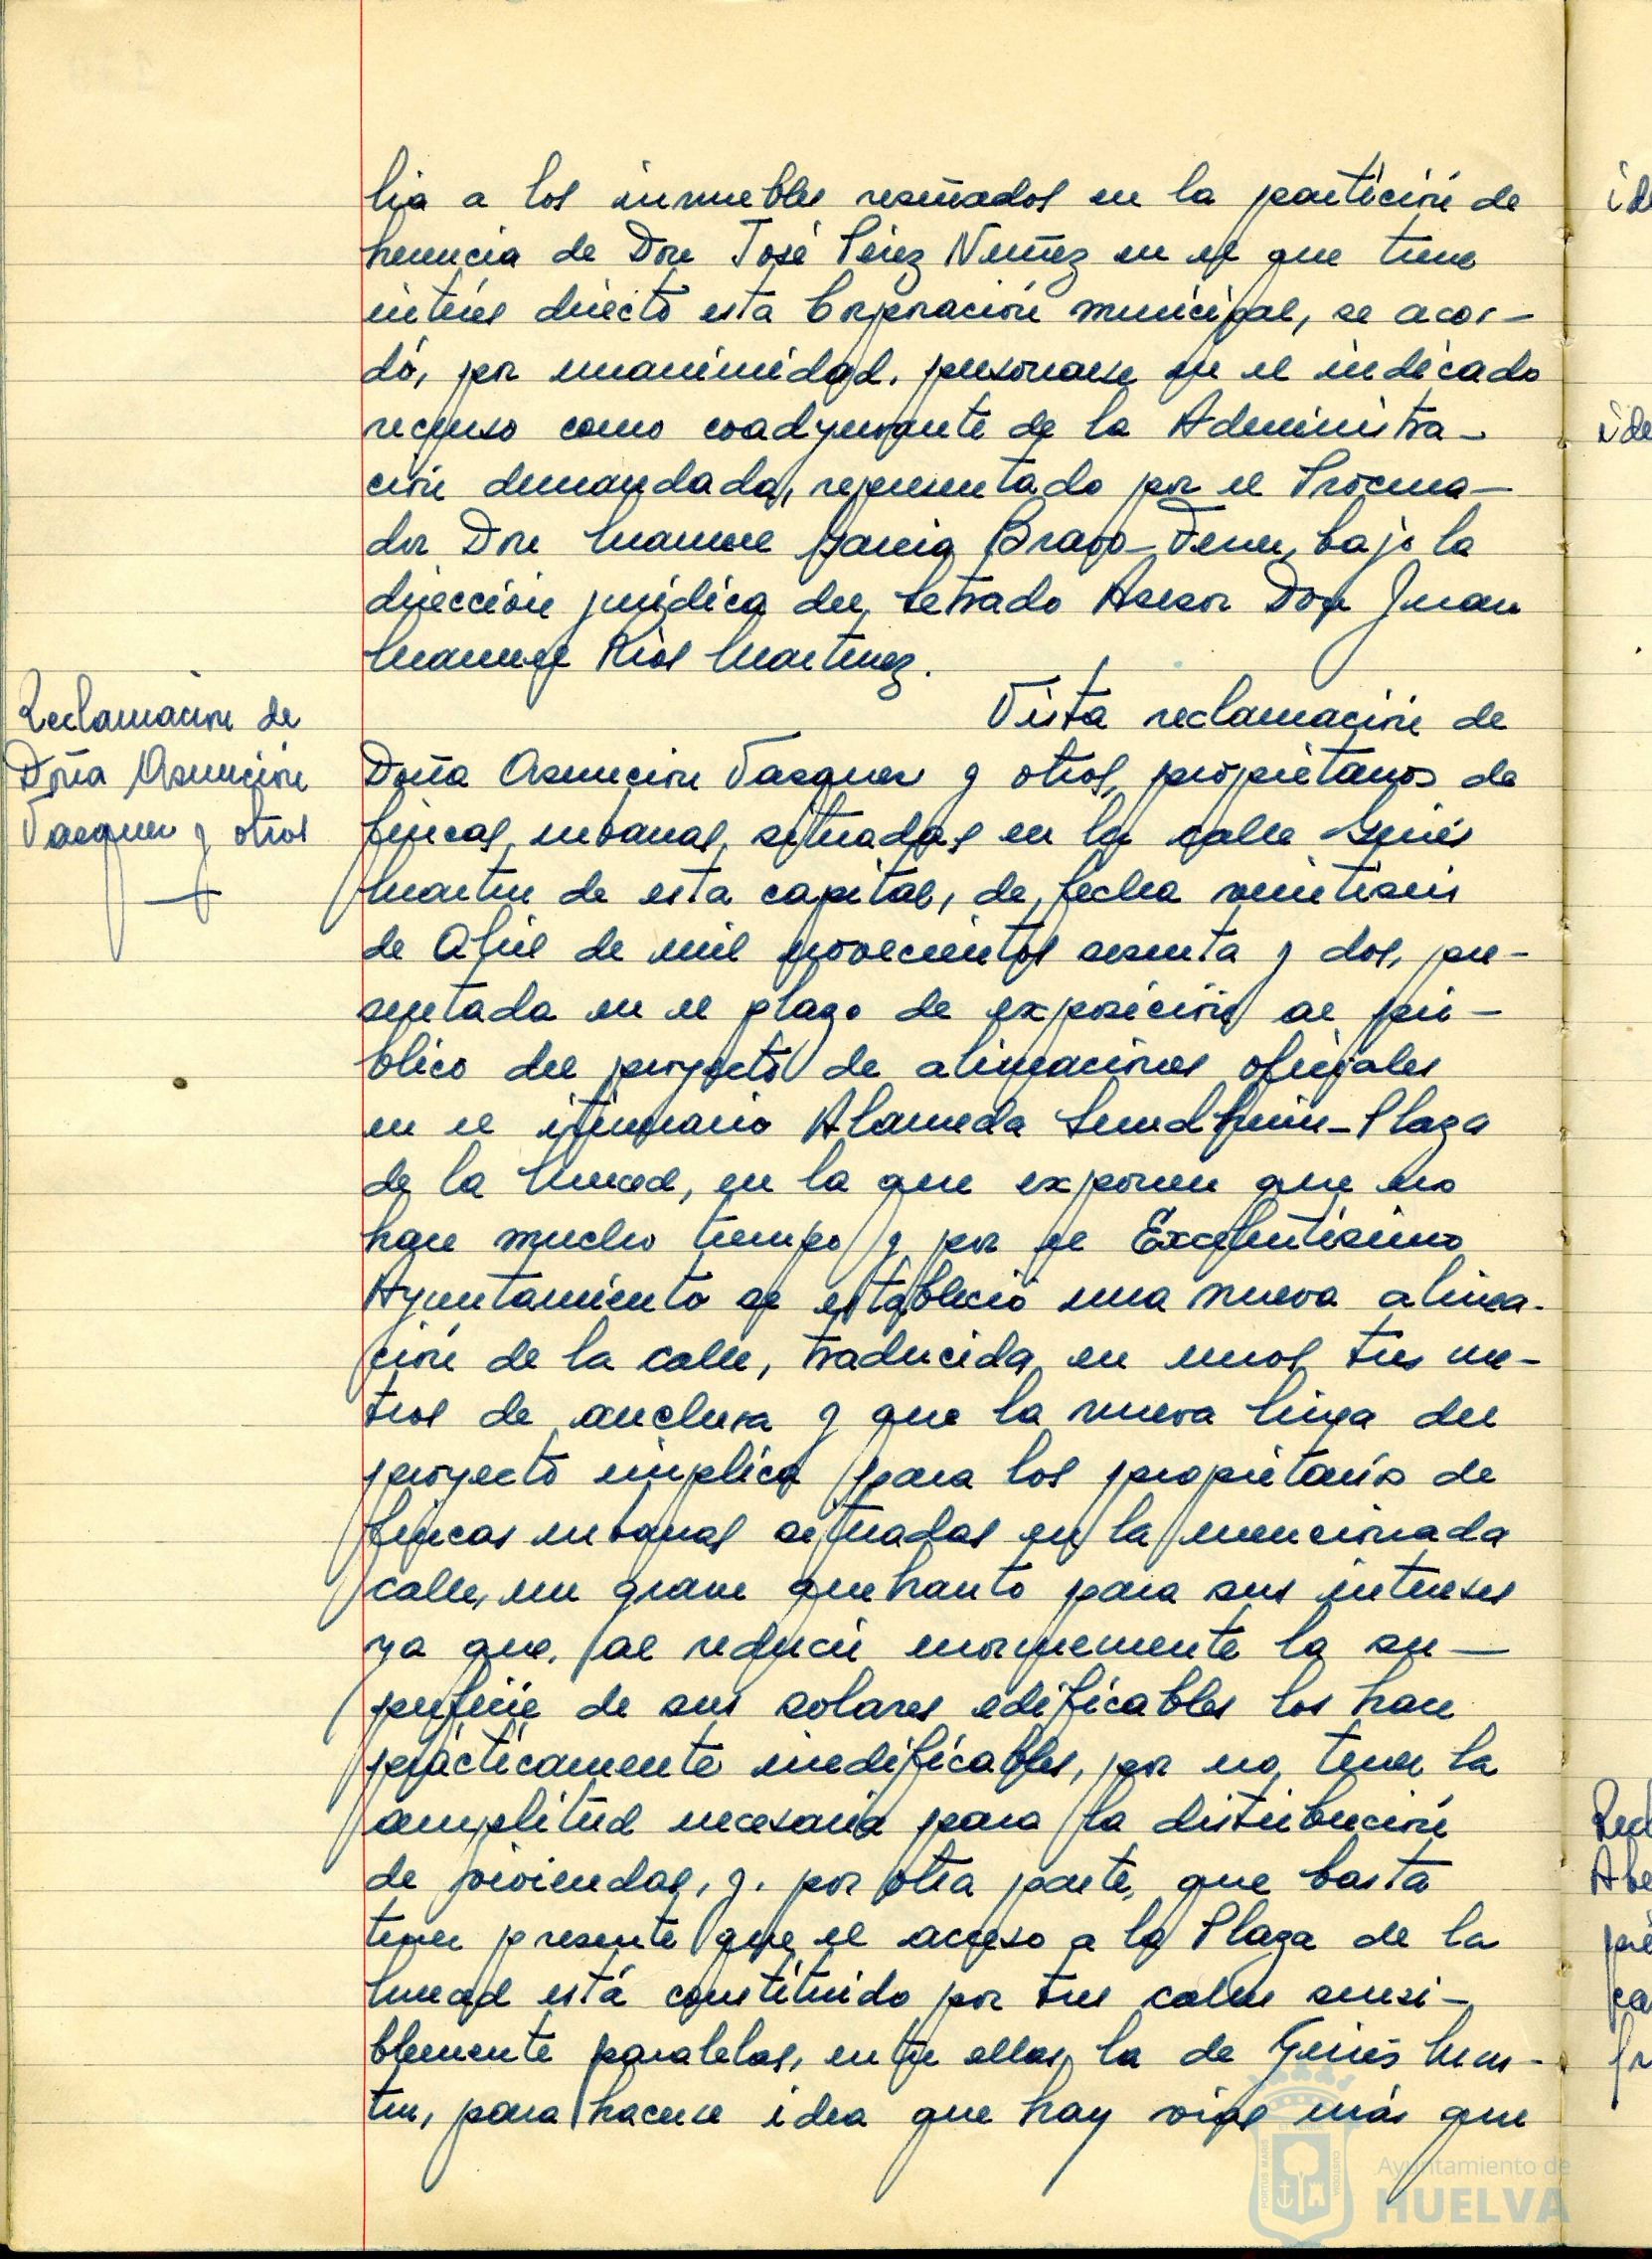 lia a los inmuebles reseñados en la partición de
herencia de Don José Pérez Nuñez en el que tiene
interés directo esta Corporación municipal, se acor-
dó, por unanimidad, personarse en el indicado
recurso como coadyuvante de la Administra-
ción demandada, representado por el Procura-
dor Don Manuel García Bravo-Ferrer, bajo la
dirección jurídica del Letrado Asesor Don Juan
Manuel Ríos Martinez.
Reclamación de
Doña Asunción
Vazquez y otros
Vista reclamación de
Doña Asunción Vazquez y otros, propietarios de
fincas urbanas, situadas en la calle Ginés
Martin de esta capital, de fecha veintiseis
de Abril de mil novecientos sesenta y dos, pre-
sentada en el plazo de exposición al pú-
blico del proyecto de alineaciones oficiales
en el itinerario Alameda Sundheim-Plaza
de la Merced, en la que exponen que no
hace mucho tiempo y por el Excelentísimo
Ayuntamiento se estableció una nueva alinea-
ción de la calle, traducida en unos tres me-
tros de anchura y que la nueva linea del
proyecto implica para los propietarios de
fincas urbanas situadas en la mencionada
calle, un grave quebranto para sus intereses
ya que, al reducir enormemente la su-
perficie de sus solares edificables los hace
prácticamente inedificables, por no tener la
amplitud necesaria para la distribución
de viviendas, y, por otra parte, que basta
tener presente que el acceso a la Plaza de la
Merced está constituido por tres calles sensi-
blemente paralelas, entre ellas, la de Ginés Mar-
tin, para hacerse idea que hay vías más que
Ayuntamiento de
HUELVA